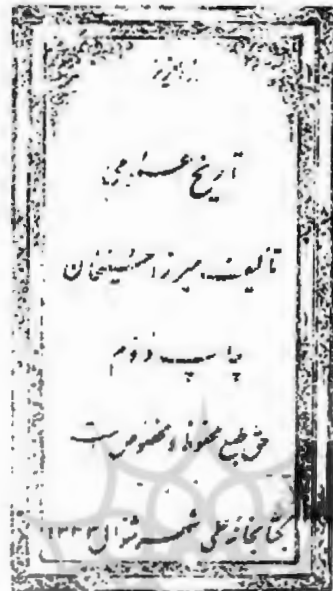 تاریخ عمومی
تألیف میرزا حسینخان
چاپ دوم
حق طبع محفوظ و مخصوص است
کتابخانه علمی شهر شوال ۱۳۳۳